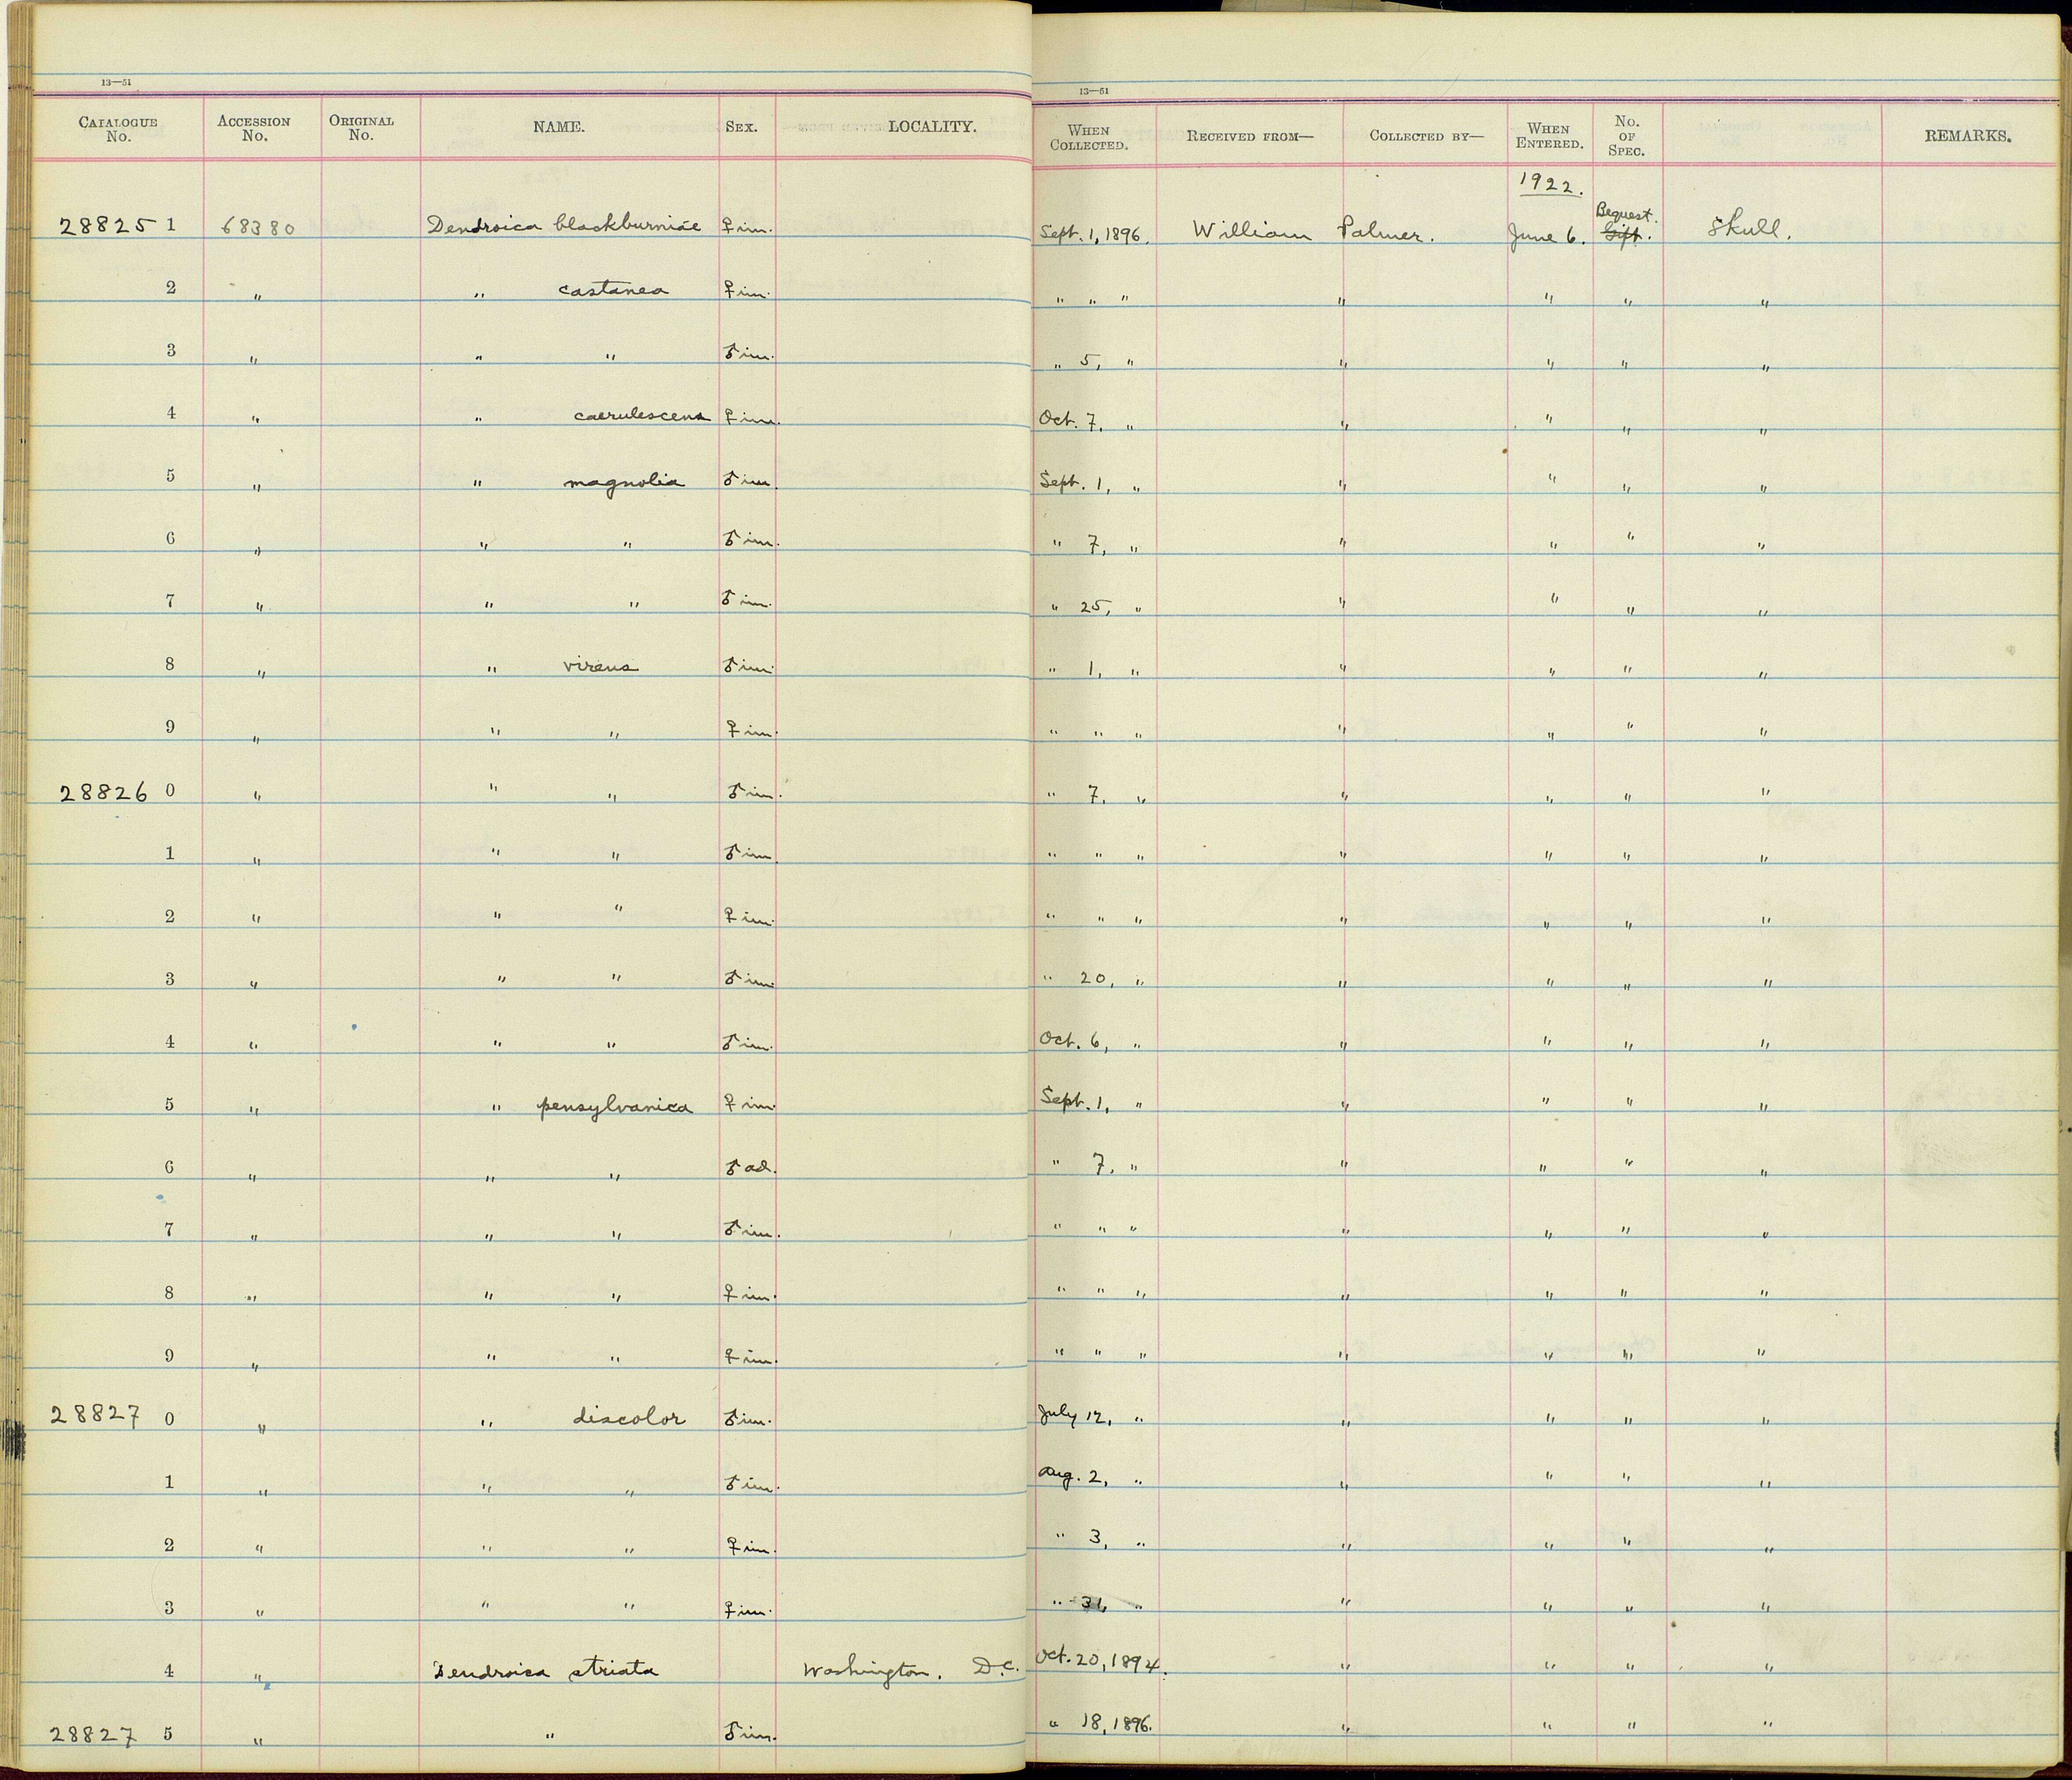 13—51
13—51
CATALOGUE No. ACCESSION No. ORIGINAL No. NAME. SEX. LOCALITY. WHEN COLLECTED. RECEIVED FROM— COLLECTED BY— WHEN ENTERED. No. OF SPEC. REMARKS.
1922.
28825 1 68380 Dendroica blackburniae ♀ im. Sept. 1, 1896. William Palmer. June 6. Bequest. Gift. Skull.
2 " " castanea ♀ im. " " " " " " "
3 " " " ♂ im. " 5, " " " " "
4 " " caerulescens ♀ im. Oct. 7, " " " " "
5 " " magnolia ♂ im. Sept. 1, " " " " "
6 " " " ♂ im. " 7, " " " " "
7 " " " ♂ im. " 25, " " " " "
8 " " virens ♂ im. " 1, " " " " "
9 " " " ♀ im. " " " " " " "
28826 0 " " " ♂ im. " 7, " " " " "
1 " " " ♂ im. " " " " " " "
2 " " " ♀ im. " " " " " " "
3 " " " ♂ im. " 20, " " " " "
4 " " " ♂ im. Oct. 6, " " " " "
5 " " pensylvanica ♀ im. Sept. 1, " " " " "
6 " " " ♂ ad. " 7, " " " " "
7 " " " ♂ im. " " " " " " "
8 " " " ♀ im. " " " " " " "
9 " " " ♀ im. " " " " " " "
28827 0 " " discolor ♂ im. July 12, " " " " "
1 " " " ♂ im. Aug. 2, " " " " "
2 " " " ♀ im. " 3, " " " " "
3 " " " ♀ im. " 31, " " " " "
4 " Dendroica striata Washington, D.C. Oct. 20, 1894. " " " "
28827 5 " " ♂ im. " 18, 1896. " " " "